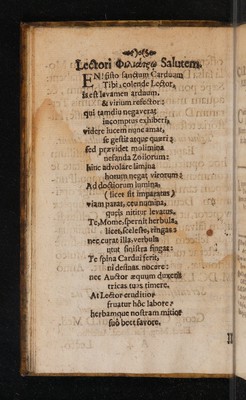 Lectori Φιλιάτρῳ Salutem.
EN! sisto sanctum Carduum
Tibi, colende Lector,
Is est levamen arduum,
& virium refector:
qui tamdiu negaverat
incomptus exhiberi,
videre lucem nunc amat,
se gestit atque quæri:
sed prævidet molimina
nefanda Zoilorum:
hinc advolare limina
horum negat virorum:
Ad doctiorum lumina,
(licet sit imparatus)
viam parat, ceu numina,
queis nititur levatus.
Te, Mome, spernit herbula,
licet, sceleste, ringas:
nec curat illa, verbula
utut sinistra fingas:
Te spina Cardui ferit,
ni desinas nocere:
nec Auctor æquum
tricas tuas timere.
At Lector eruditior
fruatur hôc labore?
herbamque nostram mitior
suô beet favore.